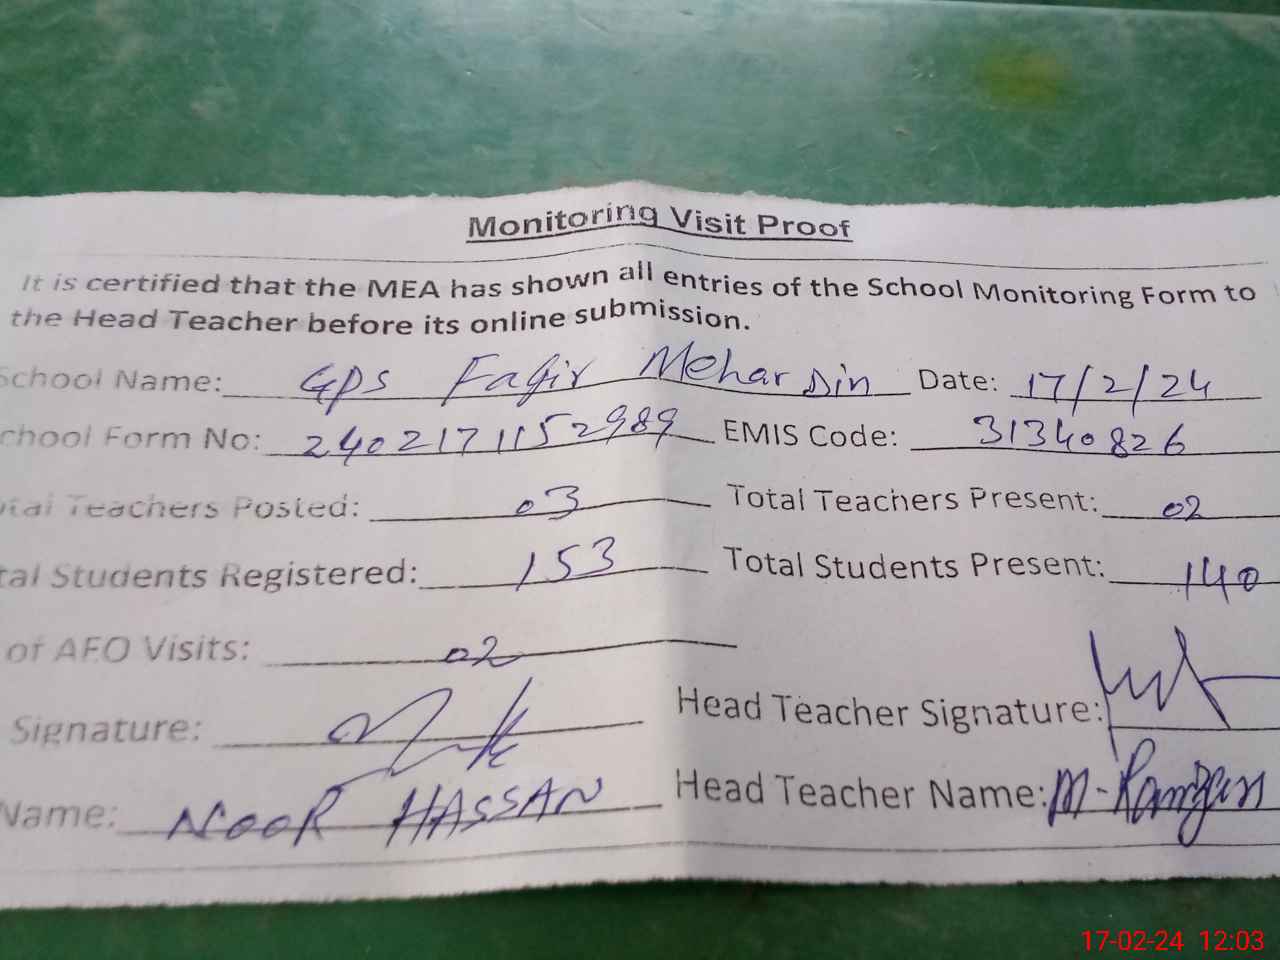 Monitoring Visit Proof
It is certified that the MEA has shown all entries of the School Monitoring Form to
the Head Teacher before its online submission.
School Name: GPS Faqir Mehar Din Date: 17/2/24
chool Form No: 2402171152989 EMIS Code: 31340826
tal Teachers Posted: 03 Total Teachers Present: 02
tal Students Registered: 153 Total Students Present: 140
of AEO Visits: 02
Signature: Head Teacher Signature:
Name: NOOR HASSAN Head Teacher Name: M-Ramzan
17-02-24 12:03